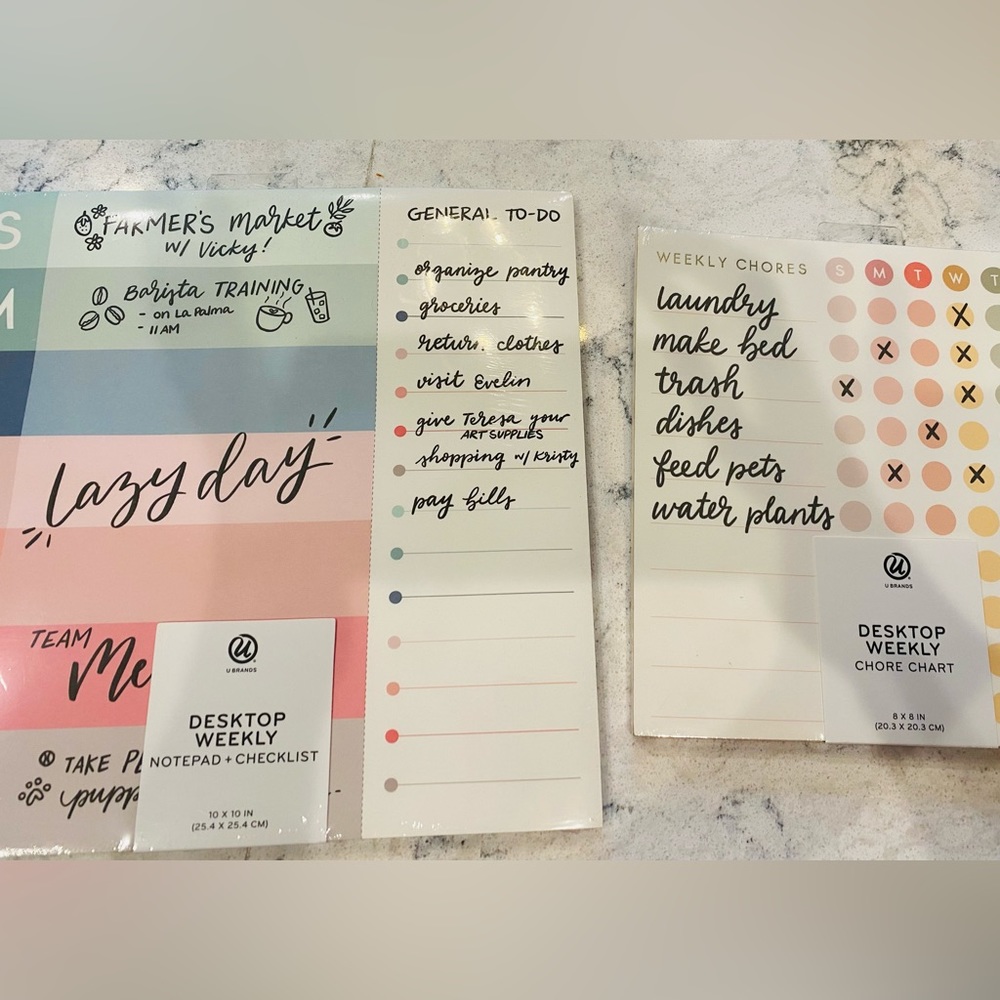 S
FARMER'S market
w/ Vicky!
M
Barista TRAINING
- on La Palma
- 11 AM
lazy day
TEAM
Me
TAKE
GENERAL TO-DO
organize pantry
groceries
return clothes
visit Evelin
give Teresa your
ART SUPPLIES
shopping w/ Kristy
pay bills
U BRANDS
DESKTOP
WEEKLY
NOTEPAD + CHECKLIST
10 X 10 IN
(25.4 X 25.4 CM)
WEEKLY CHORES S M T W T
laundry X
make bed X X
trash X X
dishes X
feed pets X X
water plants
U BRANDS
DESKTOP
WEEKLY
CHORE CHART
8 X 8 IN
(20.3 X 20.3 CM)